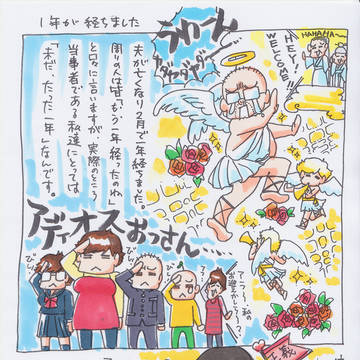 1年が経ちました
夫が亡くなり2月で一年経ちました。
周りの人は皆、「もう一年経ったのね」
と口々に言いますが、実際のところ
当事者である私達にとっては
「まだ、たった一年」なんです。
うわーん
HAHAHA〜
HEY
WELCOME!!
アディオスおっさん…